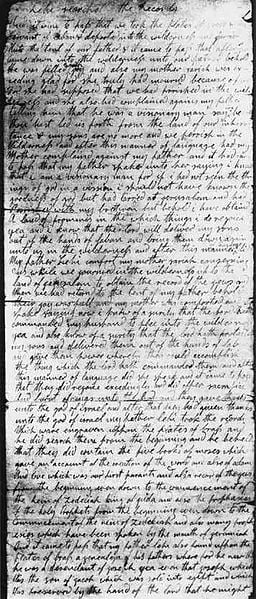 we took the plates of brass
servant of Laban & departed into the wilderness and
unto the tent of our father & it came to pass that after
came down into the wilderness unto our father behold
he was filled with joy and also my mother sariah was
ceeding glad for she truly had mourned because of
for she had supposed that we had perished in the wild
erness and she also had complained against my father
telling him that he was a visionary man saying
thou hast led us forth from the land of our inheri
tance & my sons are no more and we perish in the
wilderness and after this manner of language had my
mother complained against my father and it had
to pass that my father spake unto her saying I know
that I am a visionary man for if I had not seen the thi
ngs of god in a vision I should not have known the
goodness of god but had tarried at jerusalem and had
perished with my brethren but behold I have obtain
a land of promise in the which things I do rejoice
yea and I know that the lord will deliver my sons
out of the hands of laban and bring them down again
unto us in the wilderness and after this manner
my father lehi comfort my mother sariah concerning
us while we journied in the wilderness up to the
land of jerusalem to obtain the record of the jews &
when we had returned to the tent of my father behold
their joy was full and my mother was comforted and
spake saying now I know of a surety that the lord hath
commanded my husband to flee into the wilderness
yea and also know of a surety that the lord hath
my sons and delivered them out of the hands of lab
an & gave them power whereby they could accomplish
the thing which the lord hath commanded them and after
this manner of language did she speak and it came to
that they did rejoice exceedingly and did offer sacrifice
and burnt offerings unto the lord and they gave thanks
unto the god of israel and after that they had given thanks
unto the god of israel my father lehi took the records
which were engraven upon the plates of brass and
he did search them from the beginning and he beheld
that they did contain the five books of moses which
gave an account of the creation of the world and also of adam
and eve which was our first parents and also a record of the jews
from the beginning even down to the commencement of
the reign of zedekiah king of judah and also the prophesies
of the holy prophets from the beginning even down to the
commencement of the reign of zedekiah and also many proph
esies which have been spoken by the mouth of jeremiah
and it came to pass that my father lehi also found upon the
plates of brass a genealogy of his fathers wherefore he knew that
he was a descendant of joseph yea even that joseph which
was the son of jacob which was sold into egypt and which
was preserved by the hand of the lord that he might